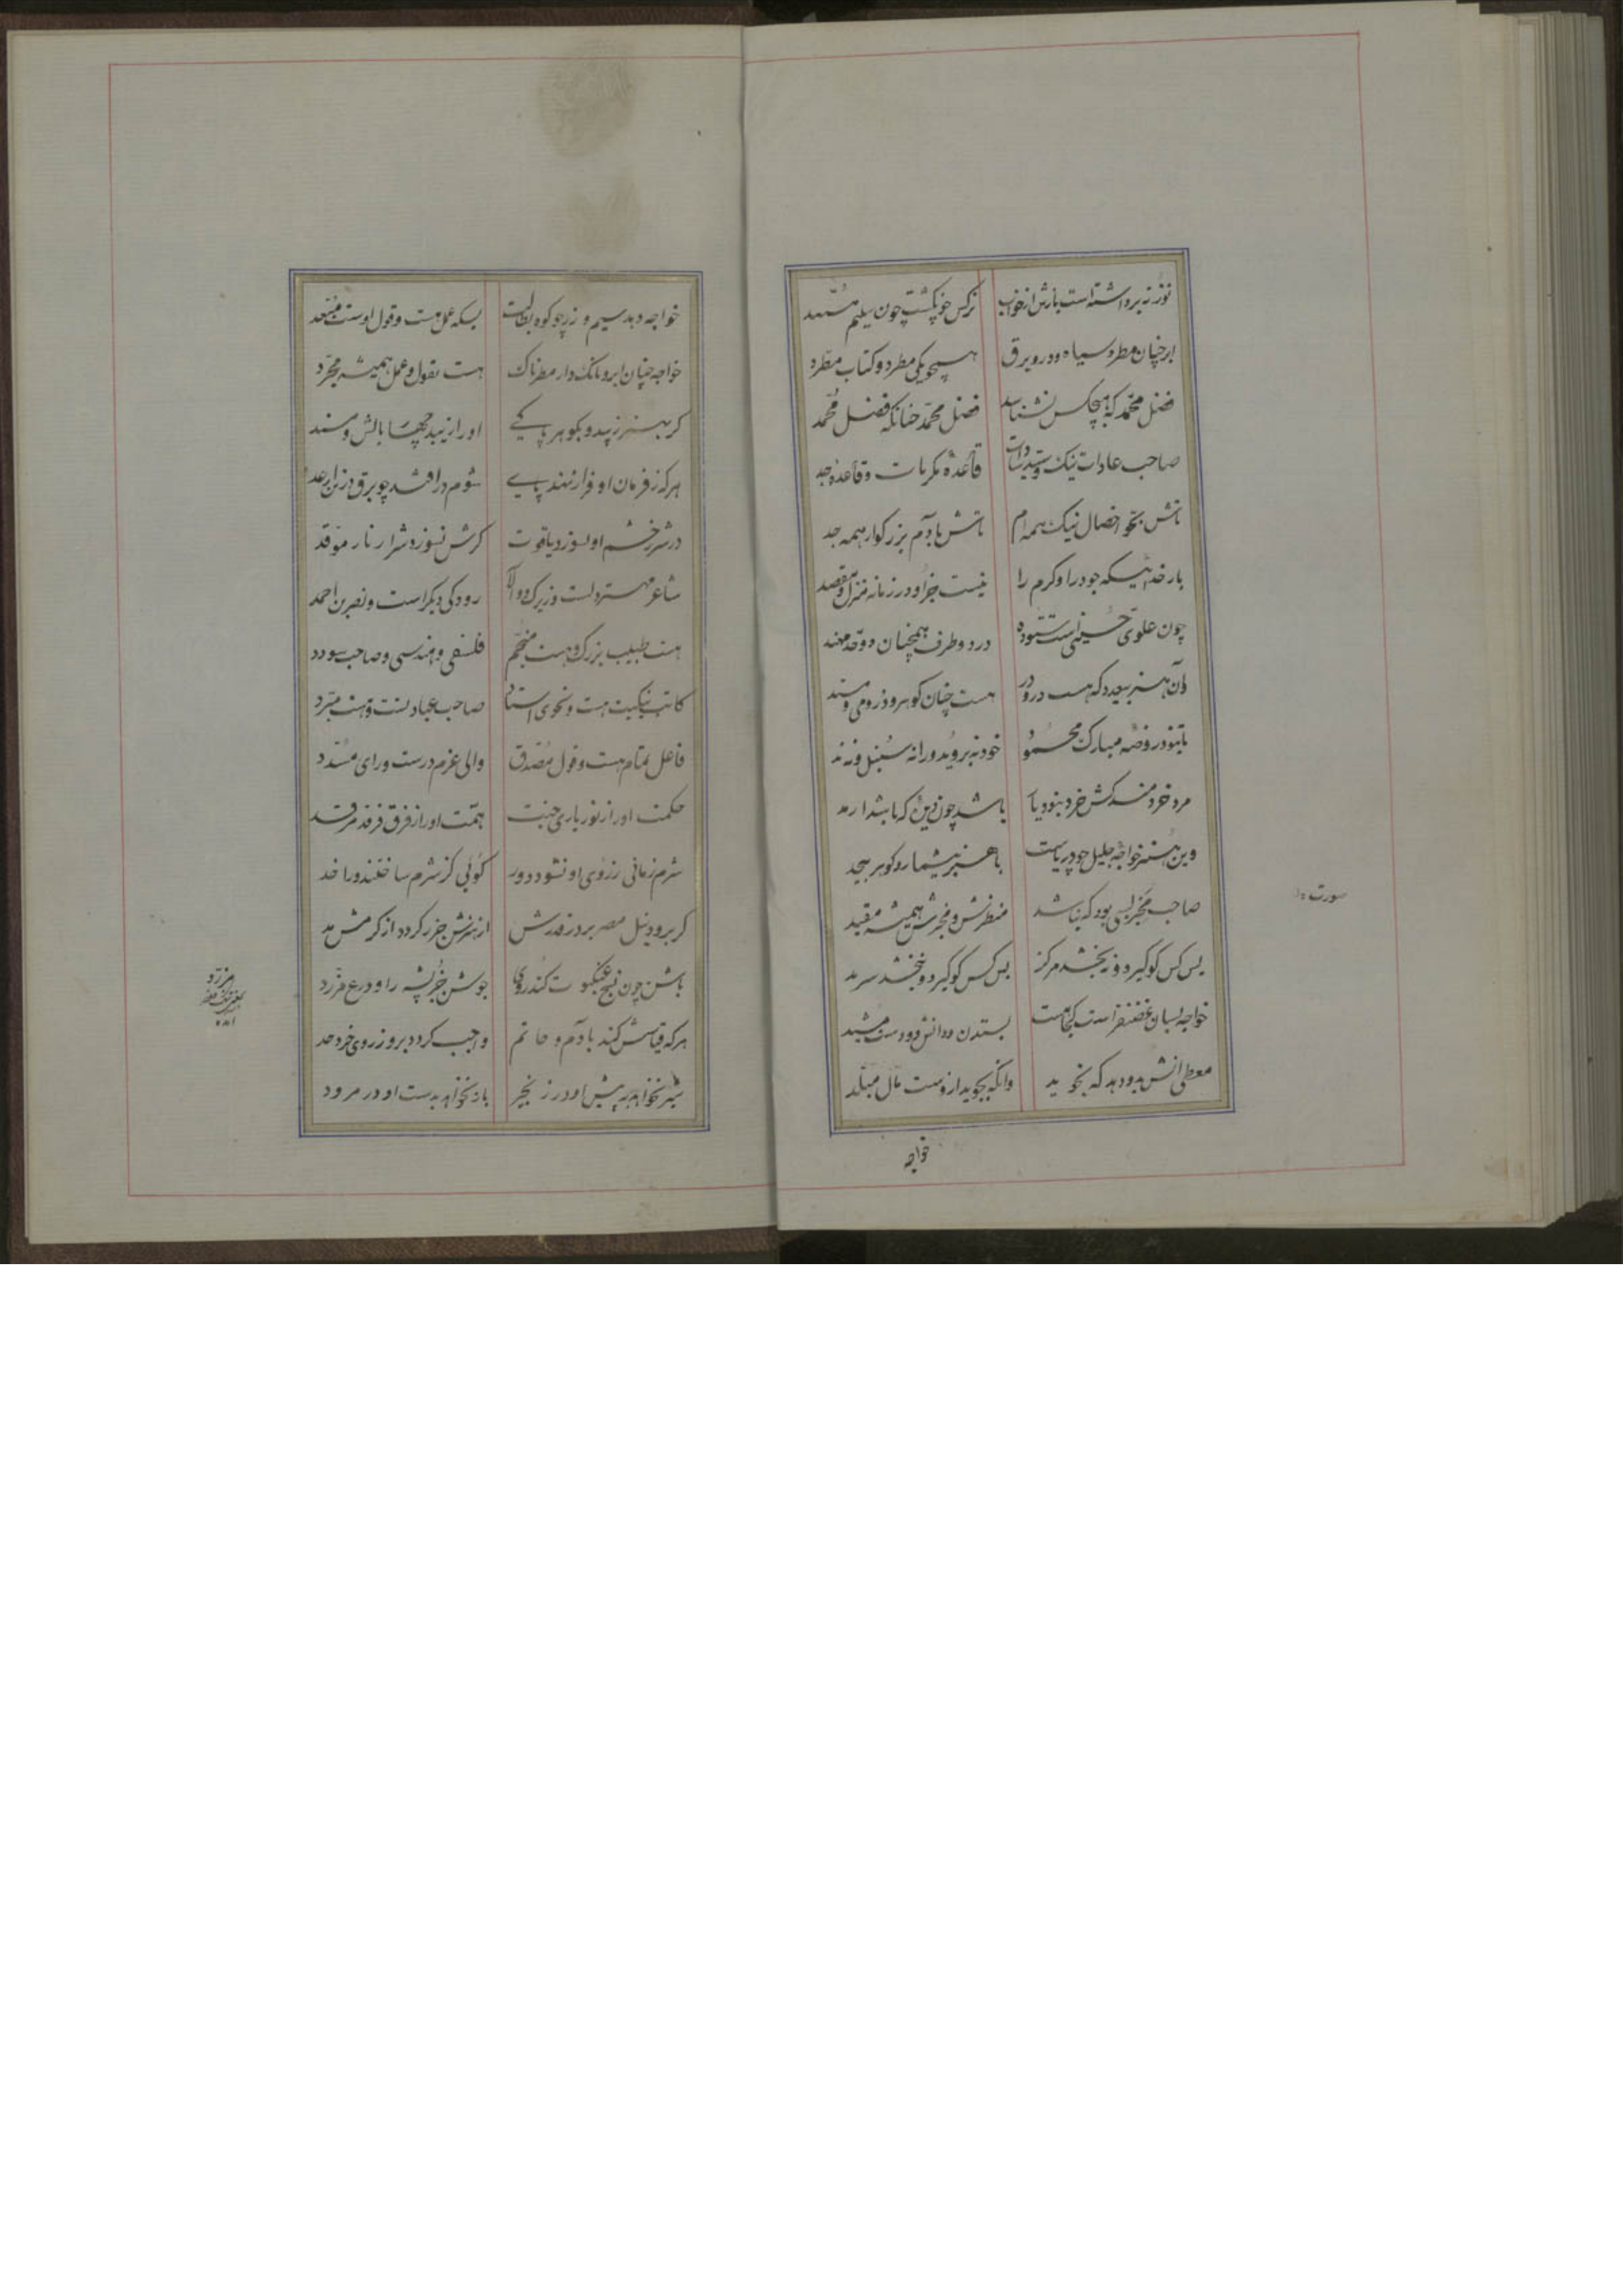 نوز نه برداشته است بارش از خواب نرگس چون سلیم مسهد
ابر چنان مطرد سیاه و درو برق همچو یکی مطرد و کتاب مطرد
فضل محمد که هیچکس نشناسد فضل محمد چنانکه فضل محمد
صاحب عادات نیک و سید سادات قاعده مکرمات و قاعده جد
باتش نیک همه ام باتش با آدم بزرگوار همه جد
بار خدائیکه جود را و کرم را نیست جز او در زمانه منزل و مقصد
چون علوی حسینی است ستوده در دو طرف همچنان دو حد مهند
وآن هنر بیعدد که هست درو در هست چنان گوهرو در
تا بود روضه مبارک محمود خود نه بروید ورا نه سنبل و نه ند
مرد خردمند کش خرد نبود یار باشد چون دیده که باشد ارمد
وین هنر خواجه جلیل چو دریاست با هنر بیشمار و گوهر بیحد
صاحب مخبر بسی بود که نباشد منظرش و مخبرش همیشه مقید
بس کس کو گیرد و نبخشد هرگز بس کس کو گیرد و بخشد سرمد
خواجه بسان غضنفر است کجا هست بستدن و دانش دو دست مشید
معطی انش بدو دهد که نجوید وانکه بجوید ازوست مال مبلد
خواجه
سورت
خواجه دهد سیم و زر چو کوه بطالب بسکه عمل هست و قول اوست مقعد
خواجه چنان ابر بانگ دار مطرناک هست بقول و عمل همیشه مجرد
گر بهنر زیبد و بگوهر او را زیبد بالش و مسند
هر که ز فرمان او فرازنهد پای شوم در افتد چو برق در زن ارعد
در شرر خشم او بسوزد یاقوت گرش نسوزد شرار نار موقد
شاعر مهتر دلست و زیرک و والا رودکی دیگر است و نصر بن احمد
هست طبیب بزرگ و هست منجم فلسفی و هندسی و صاحب سودد
کاتب نیکیت هست و نحوی استاد صاحب عباد هست و هست مبرد
فاعل تمام هست و قول مصدق والی عزم درست و رای مسدد
حکمت او را ز نور باری جنبت همت او را ز فرق فرقد مرقد
شرم زمانی ز روی او نشود دور گوئی کز شرم ساختند ورا خد
گر برود نیل مصر بر در قدرش از هنرش جزر گردد از کرمش مد
باش چون نسج عنکبوت کند روی جوشن خرپشته را و درع مزرد
هر که قیاسش کند بآدم و حاتم واجب گردد برو ز روی خرد حد
شیر نخواهد به پیش او در زنجیر باز نخواهد بدست او در مرود
مزرد